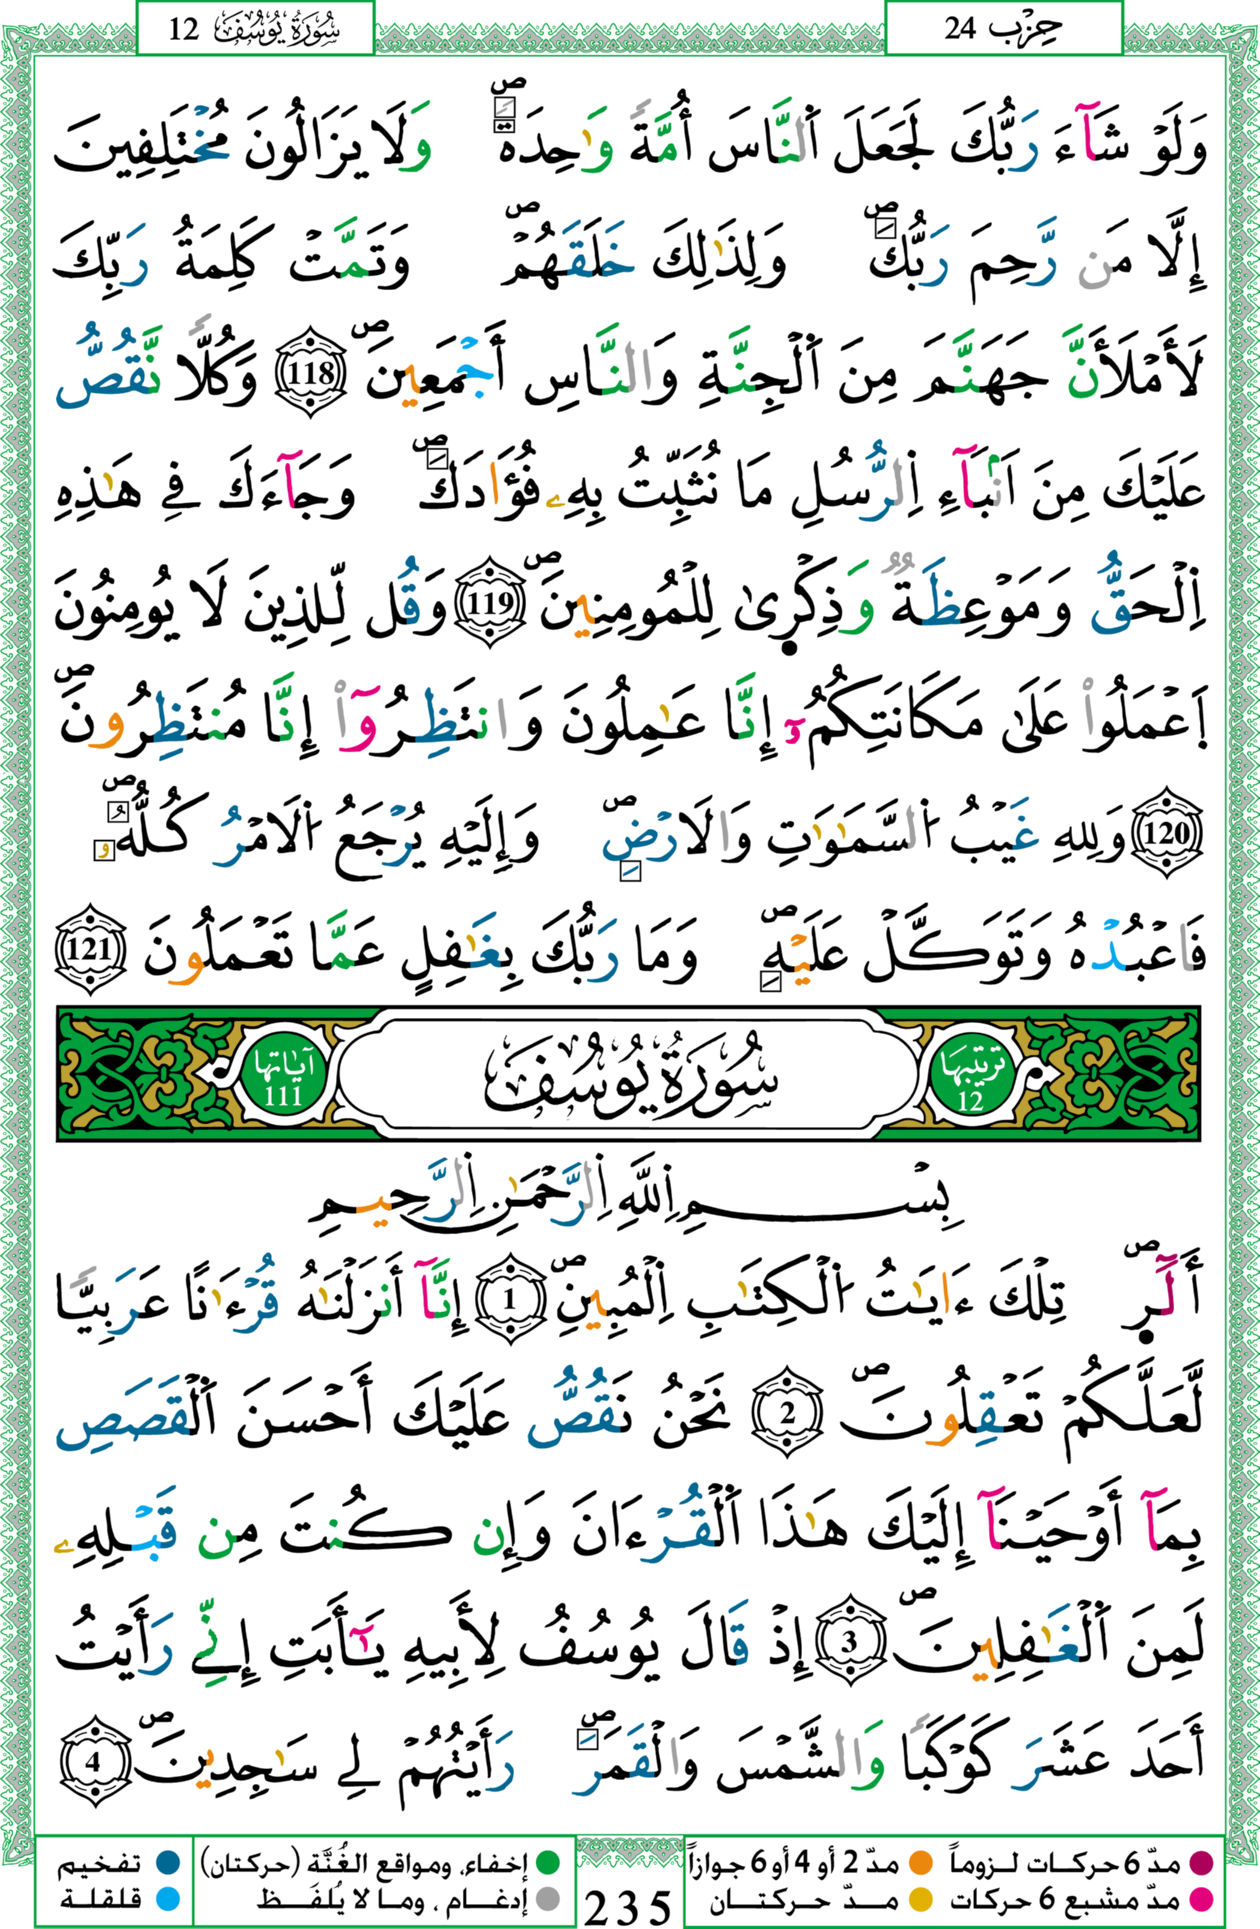 حِزْب 24
سُورَةُ يُوسُفَ 12
وَلَوْ شَآءَ رَبُّكَ لَجَعَلَ اَ۬لنَّاسَ أُمَّةٗ وَٰحِدَةٗۖ وَلَا يَزَالُونَ مُخْتَلِفِينَ
إِلَّا مَن رَّحِمَ رَبُّكَۖ وَلِذَٰلِكَ خَلَقَهُمْۖ وَتَمَّتْ كَلِمَةُ رَبِّكَ
لَأَمْلَأَنَّ جَهَنَّمَ مِنَ اَ۬لْجِنَّةِ وَالنَّاسِ أَجْمَعِينَۖ 118 وَكُلّاٗ نَّقُصُّ
عَلَيْكَ مِنَ اَنۢبَآءِ اِ۬لرُّسُلِ مَا نُثَبِّتُ بِهِۦ فُؤَادَكَۖ وَجَآءَكَ فِے هَٰذِهِ
اِ۬لْحَقُّ وَمَوْعِظَةٞ وَذِكْر۪ىٰ لِلْمُومِنِينَۖ 119 وَقُل لِّلذِينَ لَا يُومِنُونَ
اَ۪عْمَلُواْ عَلَىٰ مَكَانَتِكُمُۥٓ إِنَّا عَٰمِلُونَ وَانتَظِرُوٓاْ إِنَّا مُنتَظِرُونَۖ
120 وَلِلهِ غَيْبُ اُ۬لسَّمَٰوَٰتِ وَالَارْضِۖ وَإِلَيْهِ يُرْجَعُ اُ۬لَامْرُ كُلُّهُۥۖ
فَاعْبُدْهُ وَتَوَكَّلْ عَلَيْهِۖ وَمَا رَبُّكَ بِغَٰفِلٍ عَمَّا تَعْمَلُونَ 121
تَرتيبُهَا 12
سُورَةُ يُوسُفَ
آيَاتها 111
بِسْمِ اِ۬للَّهِ اِ۬لرَّحْمَٰنِ اِ۬لرَّحِيمِ
أَلَٓر۪ۖ تِلْكَ ءَايَٰتُ اُ۬لْكِتَٰبِ اِ۬لْمُبِينِۖ 1 إِنَّآ أَنزَلْنَٰهُ قُرْءَٰناً عَرَبِيّاٗ
لَّعَلَّكُمْ تَعْقِلُونَۖ 2 نَحْنُ نَقُصُّ عَلَيْكَ أَحْسَنَ اَ۬لْقَصَصِ
بِمَآ أَوْحَيْنَآ إِلَيْكَ هَٰذَا اَ۬لْقُرْءَانَ وَإِن كُنتَ مِن قَبْلِهِۦ
لَمِنَ اَ۬لْغَٰفِلِينَۖ 3 إِذْ قَالَ يُوسُفُ لِأَبِيهِ يَٰٓأَبَتِ إِنِّے رَأَيْتُ
أَحَدَ عَشَرَ كَوْكَباٗ وَالشَّمْسَ وَالْقَمَرَۖ رَأَيْتُهُمْ لِے سَٰجِدِينَۖ 4
مدّ 6 حركات لـزوماً
مدّ 2 أو 4 أو 6 جوازاً
إخفاء، ومواقع الغُنَّة (حركتان)
تفخيم
مدّ مشبع 6 حركات
مدّ حركتان
235
إدغام ، وما لا يُلفَظ
قلقلة